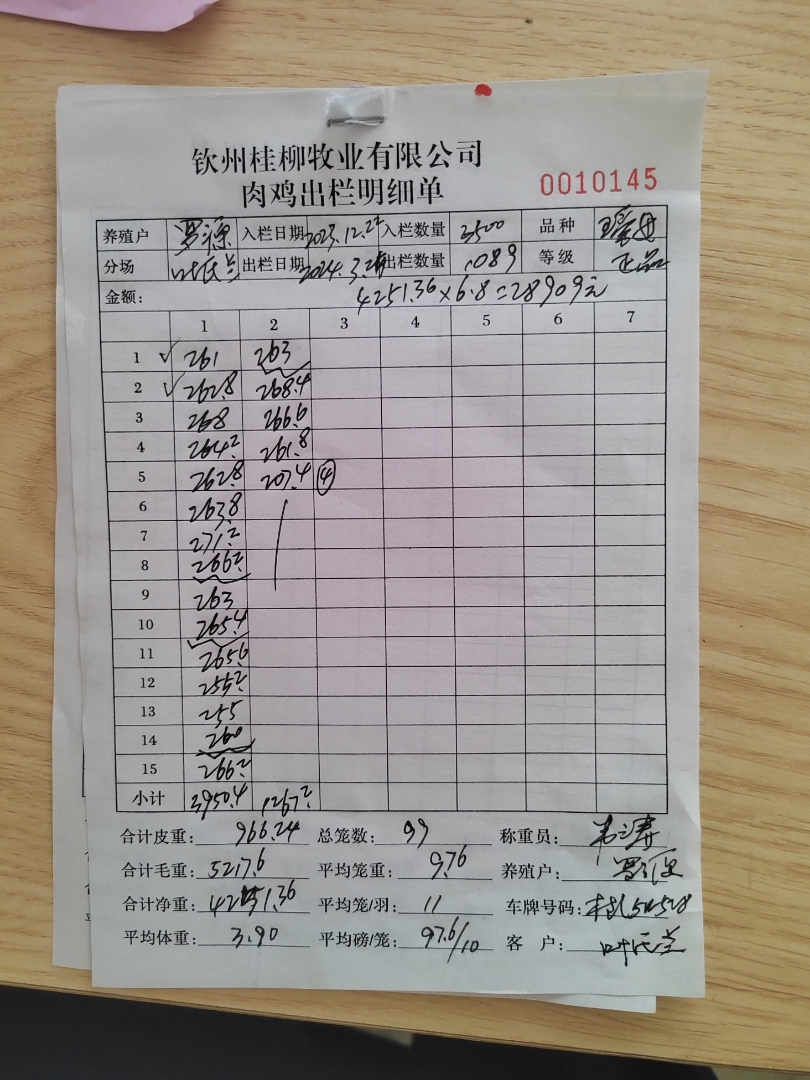 钦州桂柳牧业有限公司
肉鸡出栏明细单
0010145
养殖户 罗源 入栏日期 2023.12.22 入栏数量 3500 品种
分场 叶氏兰 出栏日期 2024.3.2 出栏数量 1089 等级 正品
金额: 4251.36×6.8=28909元
1 2 3 4 5 6 7
1 ✓ 261 263
2 ✓ 262.8 268.4
3 268 266.6
4 264.2 261.8
5 262.8 207.4 ④
6 263.8
7 271.2
8 266.2
9 263
10 265.4
11 265.6
12 255.2
13 255
14 260
15 266.2
小计 3950.4 1267.2
合计皮重: 966.24 总笼数: 99 称重员: 韦涛
合计毛重: 5217.6 平均笼重: 9.76 养殖户: 罗源
合计净重: 4251.36 平均笼/羽: 11 车牌号码:
平均体重: 3.90 平均磅/笼: 97.6/10 客 户: 叶氏兰